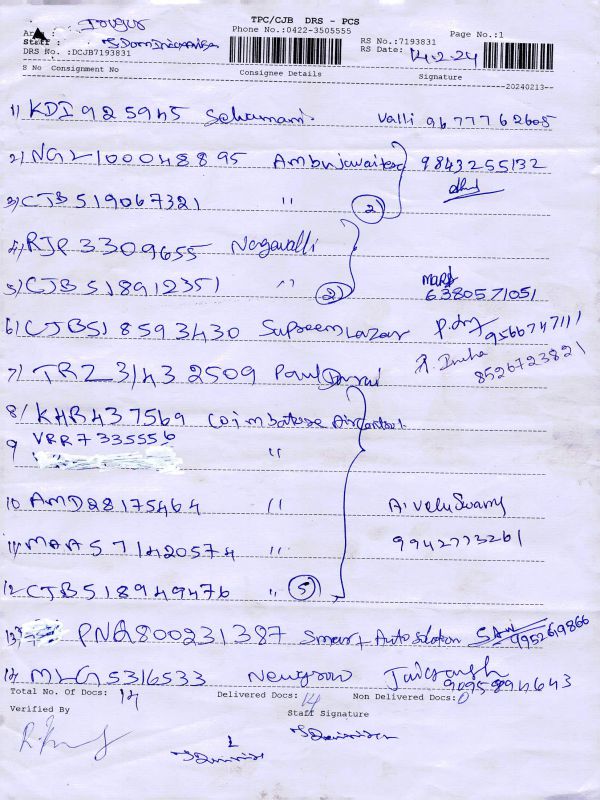 TPC/CJB DRS - PCS
Phone No.:0422-3505555
Page No.:1
RS No.:7193831
Staff :
RS Date: 14-2-24
DRS No. :DCJB7193831
S No Consignment No Consignee Details Signature
--20240213--
1) KDI 925945 Selvamani Valli 9677762605
2) NGL1000428895 9843255132
3) CJB519067321 " 2
4) RJP 3309655 Nagavalli
5) CJB518912351 " 2 6380571051
6) CJB518593430 Supreem Lazar 9566747111
7) TRZ 31432509 Paul Durai 8526723821
8) KHR437569 Coimbatore Aircontrol
9 VRR7335556 "
10 AMD28175464 " A. Velu Swamy
11) MAA571420574 " 9942773261
12 CJB518949476 " 5
13) PNQ800231387 Smart Auto Solution 9952619866
14) MLG5316533 Newgrow
Total No. Of Docs: 14 Delivered Docs: 14 Non Delivered Docs: 0
Verified By Staff Signature